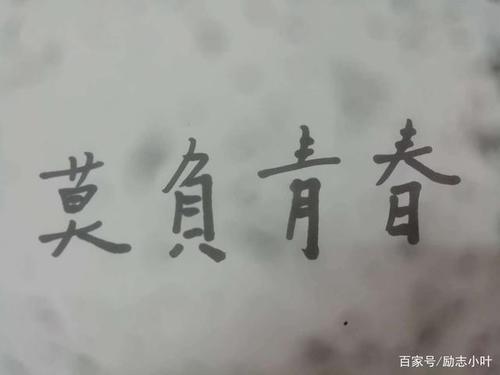 莫負青春
百家号/励志小叶